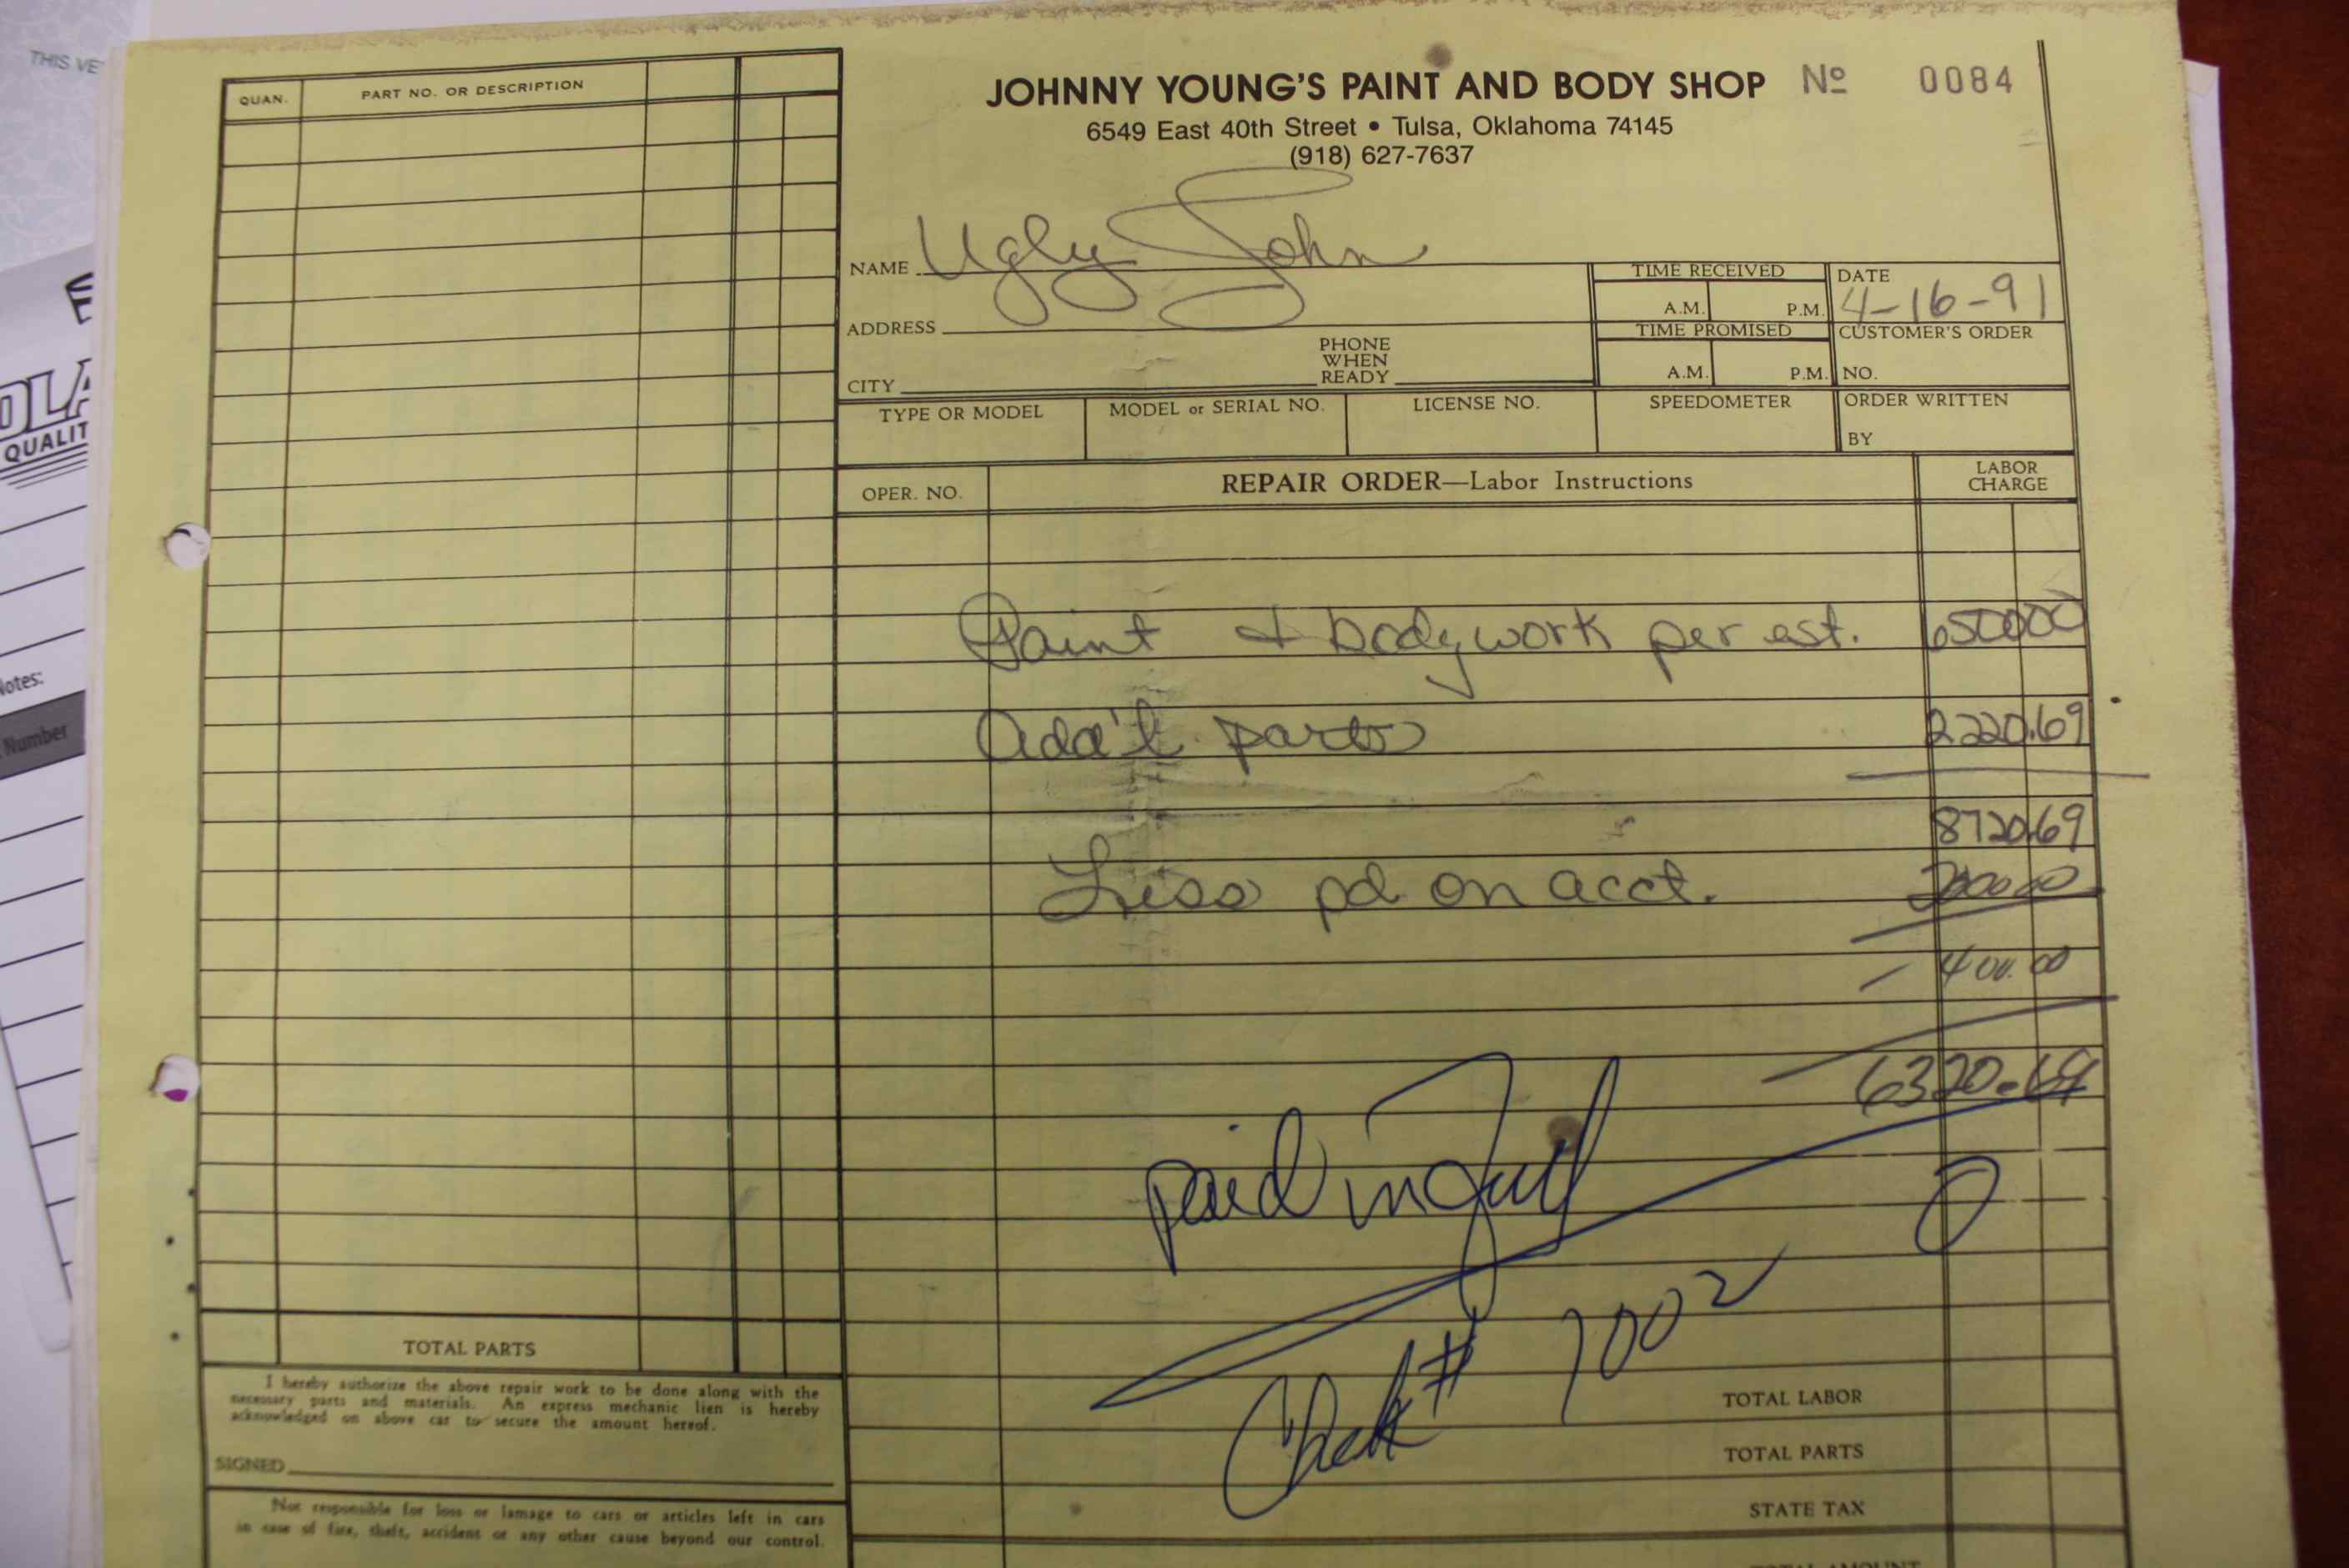 THIS VE
QUALIT
Notes:
Number
QUAN.
PART NO. OR DESCRIPTION
JOHNNY YOUNG'S PAINT AND BODY SHOP Nº 0084
6549 East 40th Street • Tulsa, Oklahoma 74145
(918) 627-7637
NAME Ugly John
TIME RECEIVED
A.M. P.M.
DATE
4-16-91
ADDRESS
TIME PROMISED
A.M. P.M.
CUSTOMER'S ORDER
NO.
CITY
PHONE
WHEN
READY
TYPE OR MODEL
MODEL or SERIAL NO.
LICENSE NO.
SPEEDOMETER
ORDER WRITTEN
BY
OPER. NO.
REPAIR ORDER—Labor Instructions
LABOR
CHARGE
Paint & bodywork per est. 650000
Add'l parts 2220.69
8720.69
Less pd on acct. 2000 00
- 400.00
6320.69
paid in full 0
Check # 7002
TOTAL PARTS
I hereby authorize the above repair work to be done along with the
necessary parts and materials. An express mechanic lien is hereby
acknowledged on above car to secure the amount hereof.
SIGNED
Not responsible for loss or lamage to cars or articles left in cars
in case of fire, theft, accident or any other cause beyond our control.
TOTAL LABOR
TOTAL PARTS
STATE TAX
TOTAL AMOUNT